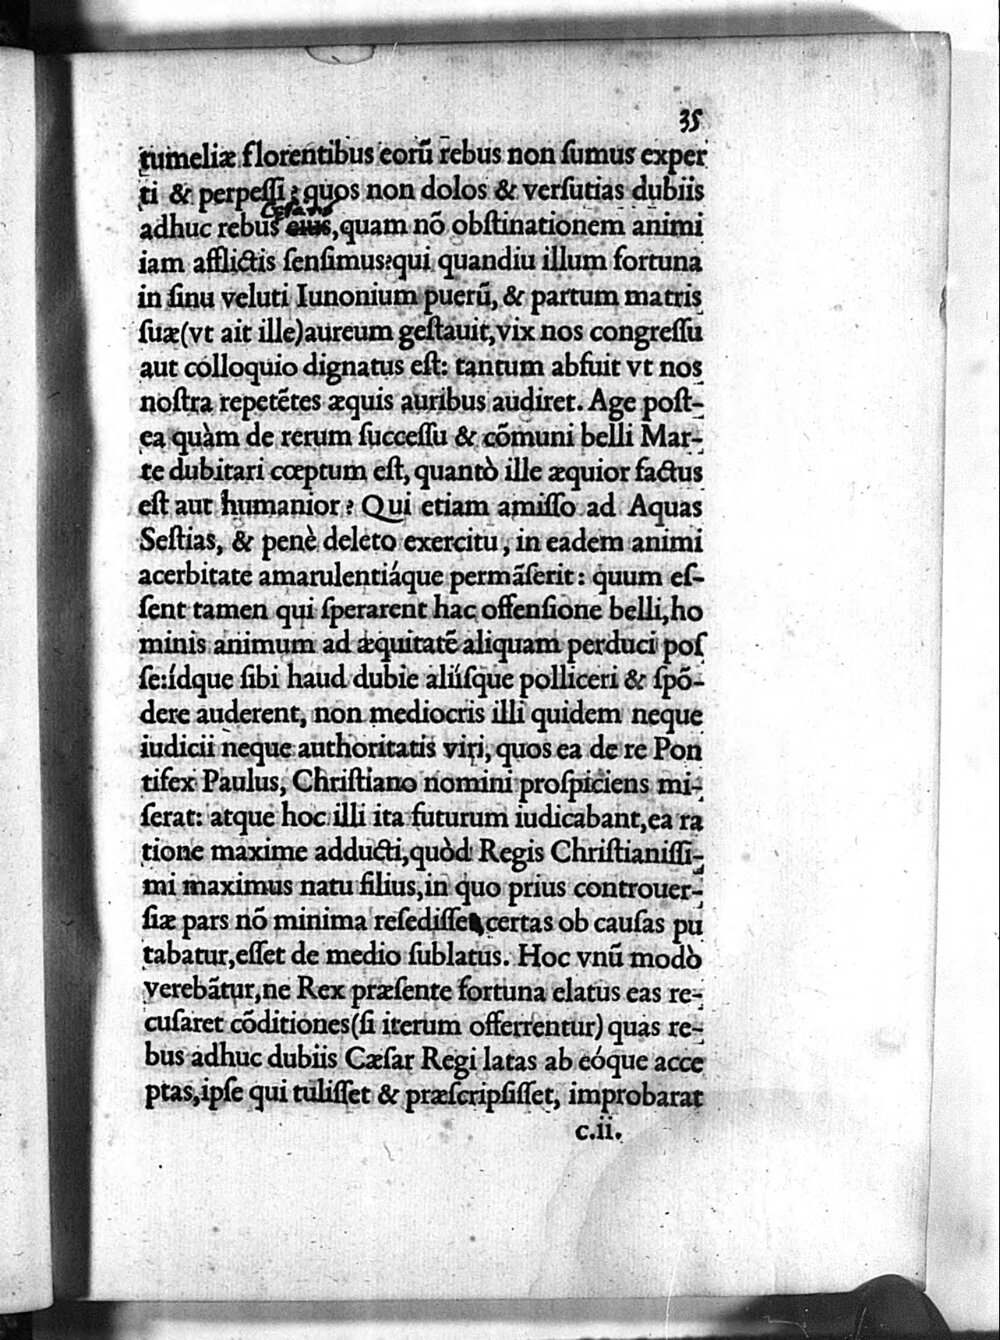 35
tumeliæ florentibus eorũ rebus non ſumus exper
ti & perpeſſi? quos non dolos & verſutias dubiis
Cæſaris
adhuc rebus eius, quam nõ obſtinationem animi
iam afflictis ſenſimus? qui quandiu illum fortuna
in ſinu veluti Iunonium puerũ, & partum matris
ſuæ (vt ait ille) aureum geſtauit, vix nos congreſſu
aut colloquio dignatus eſt: tantum abfuit vt nos
noſtra repetẽtes æquis auribus audiret. Age poſt-
ea quàm de rerum ſucceſſu & cõmuni belli Mar-
te dubitari cœptum eſt, quantò ille æquior factus
eſt aut humanior? Qui etiam amiſſo ad Aquas
Seſtias, & penè deleto exercitu, in eadem animi
acerbitate amarulentiáque permãſerit: quum eſ-
ſent tamen qui ſperarent hac offenſione belli, ho
minis animum ad æquitatẽ aliquam perduci poſ
ſe: ídque ſibi haud dubie aliíſque polliceri & ſpõ-
dere auderent, non mediocris illi quidem neque
iudicii neque authoritatis viri, quos ea de re Pon
tifex Paulus, Chriſtiano nomini proſpiciens mi-
ſerat: atque hoc illi ita futurum iudicabant, ea ra
tione maxime adducti, quòd Regis Chriſtianiſſi-
mi maximus natu filius, in quo prius controuer-
ſiæ pars nõ minima reſediſſet, certas ob cauſas pu
tabatur, eſſet de medio ſublatus. Hoc vnũ modò
verebãtur, ne Rex præſente fortuna elatus eas re-
cuſaret cõditiones (ſi iterum offerrentur) quas re-
bus adhuc dubiis Cæſar Regi latas ab eóque acce
ptas, ipſe qui tuliſſet & præſcripſiſſet, improbarat
c.ii.